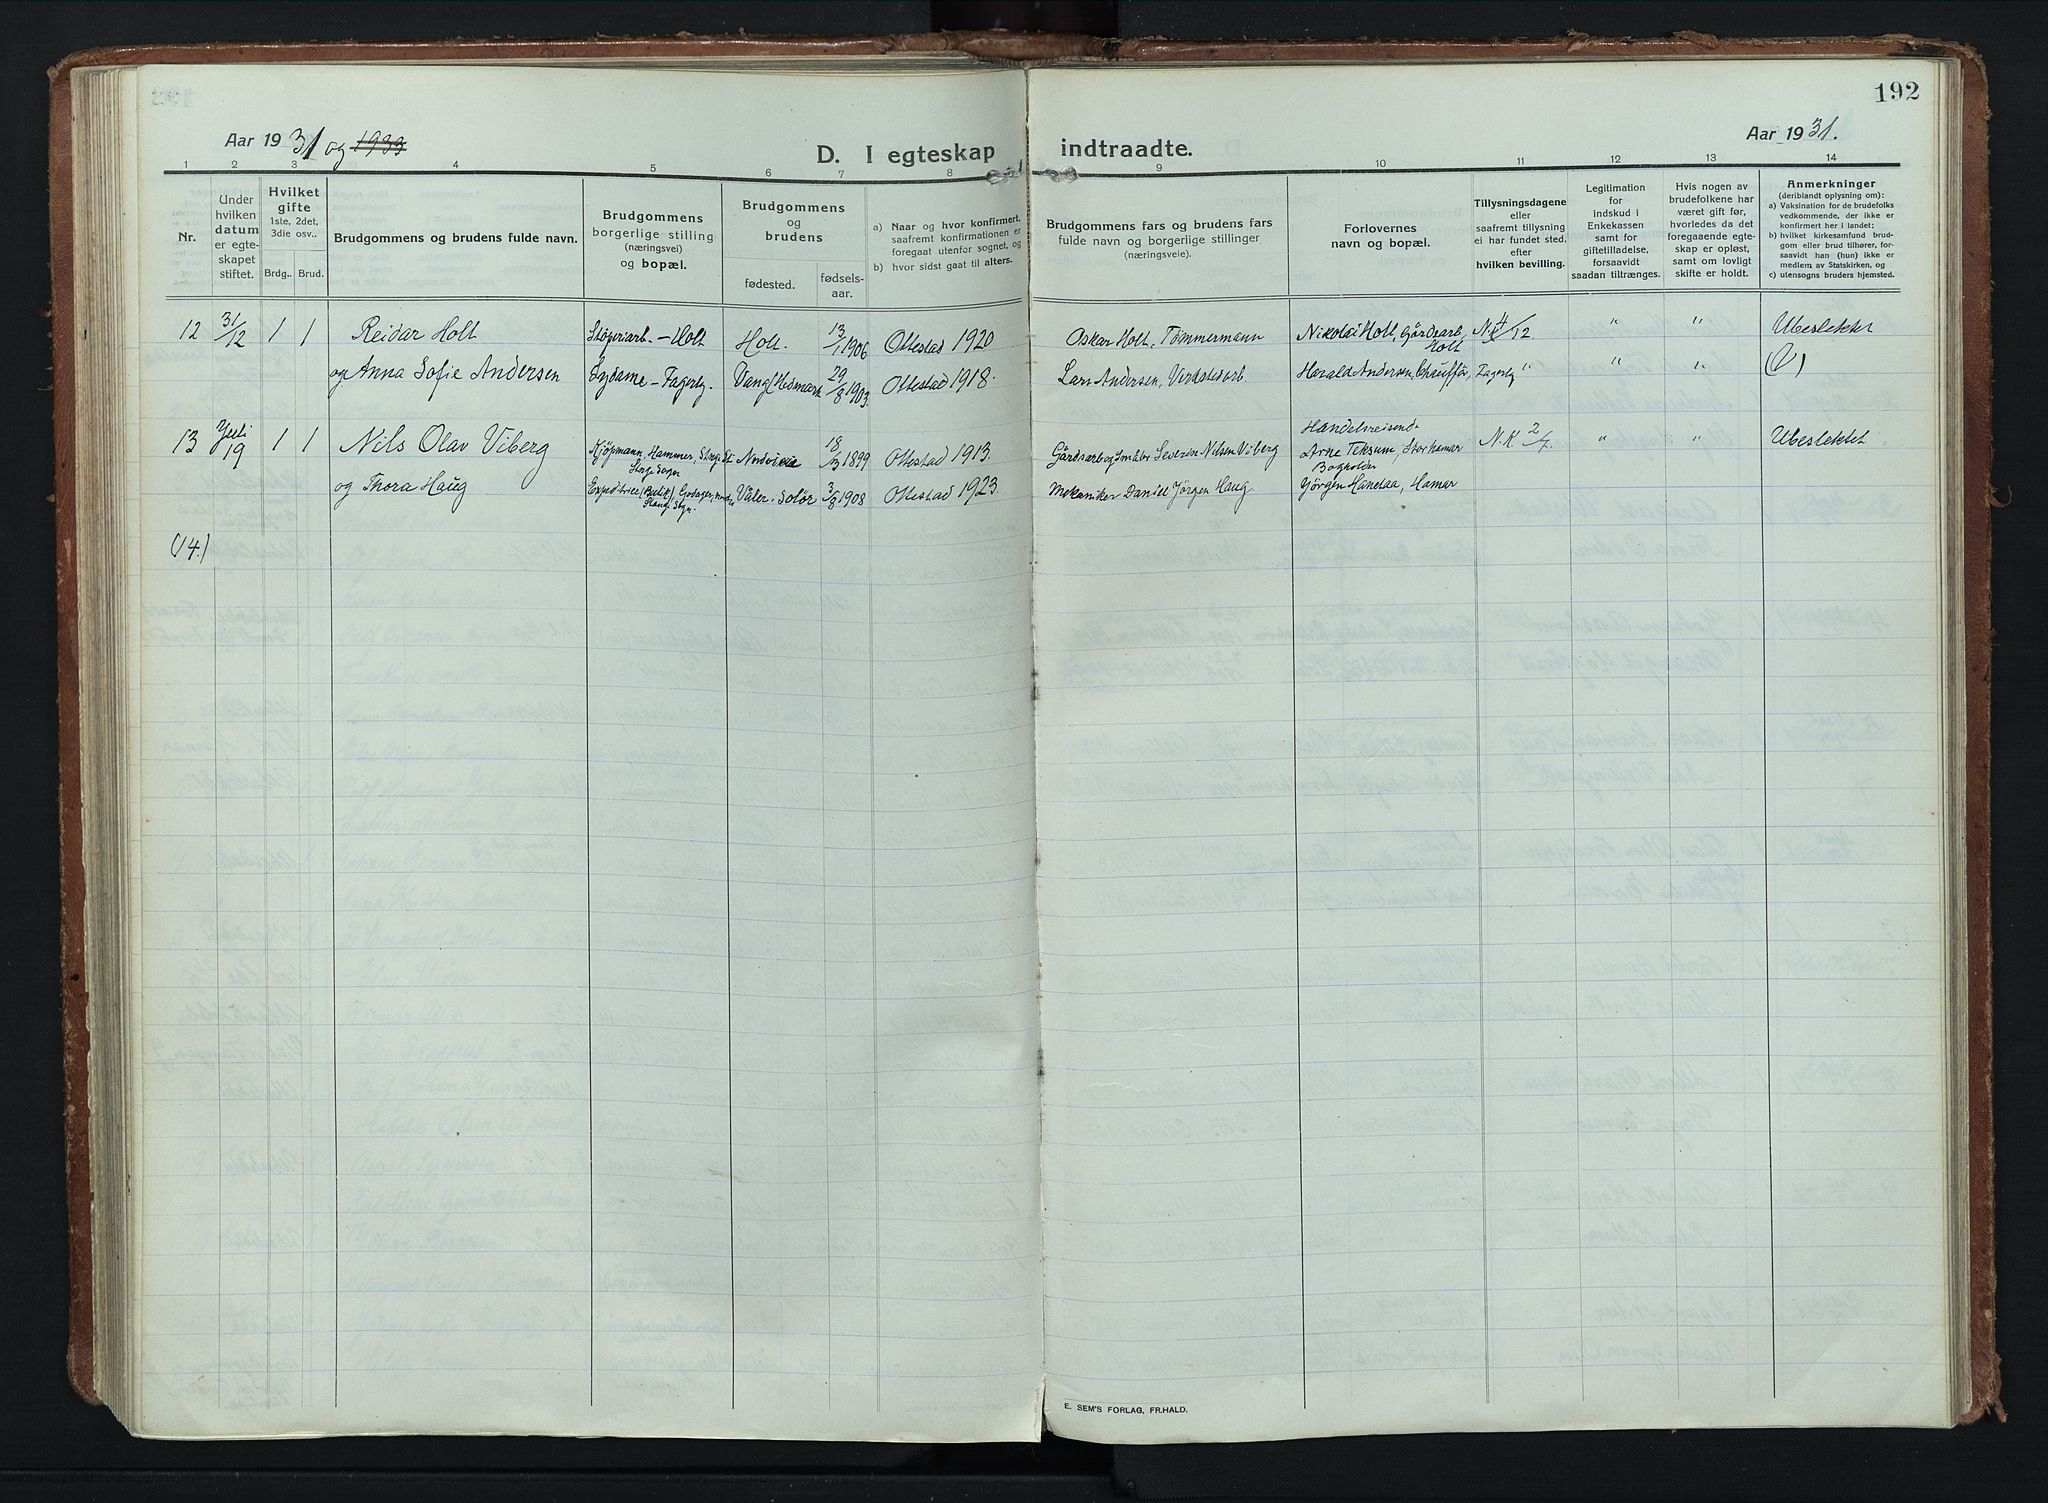 192
Aar 1931 og 1933
Aar 1931.
D. I egteskap indtraadte.
1 2 3 4 5 6 7 8 9 10 11 12 13 14
Nr.
Under hvilken datum er egteskapet stiftet.
Hvilket gifte 1ste, 2det, 3die osv..
Brdg.. Brud.
Brudgommens og brudens fulde navn.
Brudgommens borgerlige stilling (næringsvei) og bopæl.
Brudgommens og brudens
fødested. fødselsaar.
a) Naar og hvor konfirmert, saafremt konfirmationen er foregaat utenfor sognet, og
b) hvor sidst gaat til alters.
Brudgommens fars og brudens fars fulde navn og borgerlige stillinger (næringsveie).
Forlovernes navn og bopæl.
Tillysningsdagene eller saafremt tillysning ei har fundet sted, efter hvilken bevilling.
Legitimation for indskud i Enkekassen samt for giftetilladelse, forsaavidt saadan tiltrænges.
Hvis nogen av brudefolkene har været gift før, hvorledes da det foregaaende egteskap er opløst, samt om lovlig skifte er holdt.
Anmerkninger (deriblandt oplysning om):
a) Vaksination for de brudefolks vedkommende, der ikke er konfirmert her i landet;
b) hvilket kirkesamfund brudgom eller brud tilhører, forsaavidt han (hun) ikke er medlem av Statskirken, og
c) utensogns bruders hjemsted.
12 31/12 1 1 Reidar Holt Støperiarb. – Holt Holt. 13/1 1906 Ottestad 1920 Oskar Holt, Tømmermann Nikolai Holt, Gårdsarb. Holt N.K 4/12. " " Ubeslektet
og Anna Sofie Andersen Sydame – Fagerly. Vang Hedmark 29/8 1903. Ottestad 1918. Lars Andersen, Verkstedarb. Harald Andersen, Chauffør, Fagerly " " " (V)
13 Juli 19 1 1 Nils Olav Viberg Kjøpmann, Hammer, Stange Sogn 18/3 1899 Ottestad 1913. Severin Nilsen Viberg Handelsreisende Arne Teksum, Storhamar N.K 2/7. " " Ubeslektet
og Thora Haug (Butik), Stange Sogn. Våler, Solør 3/8 1908 Ottestad 1923. Mekaniker Daniel Jörgen Haug. Bogholder Jörgen Hanetaa, Hamar
(14.)
E. SEM'S FORLAG, FR.HALD.